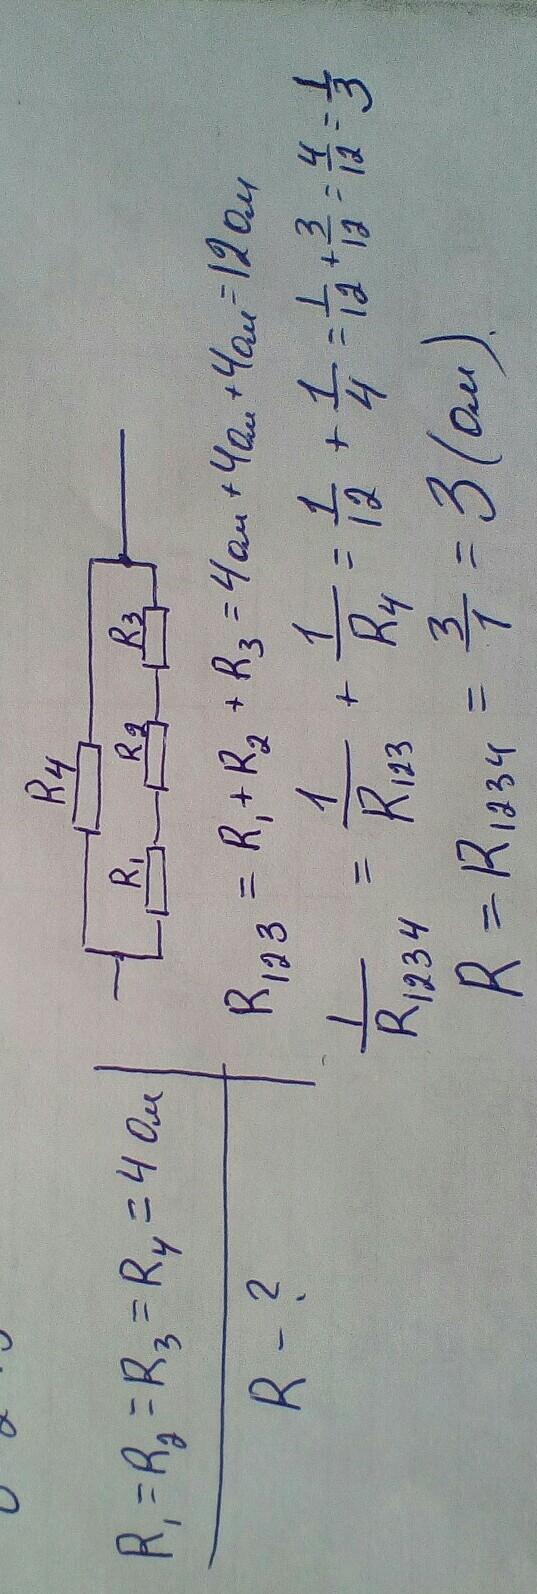 R₁ = R₂ = R₃ = R₄ = 4 Ом
R - ?
R4
R₁ R2 R3
R₁₂₃ = R₁ + R₂ + R₃ = 4 Ом + 4 Ом + 4 Ом = 12 Ом
1/R₁₂₃₄ = 1/R₁₂₃ + 1/R₄ = 1/12 + 1/4 = 1/12 + 3/12 = 4/12 = 1/3
R = R₁₂₃₄ = 3/1 = 3 (Ом).